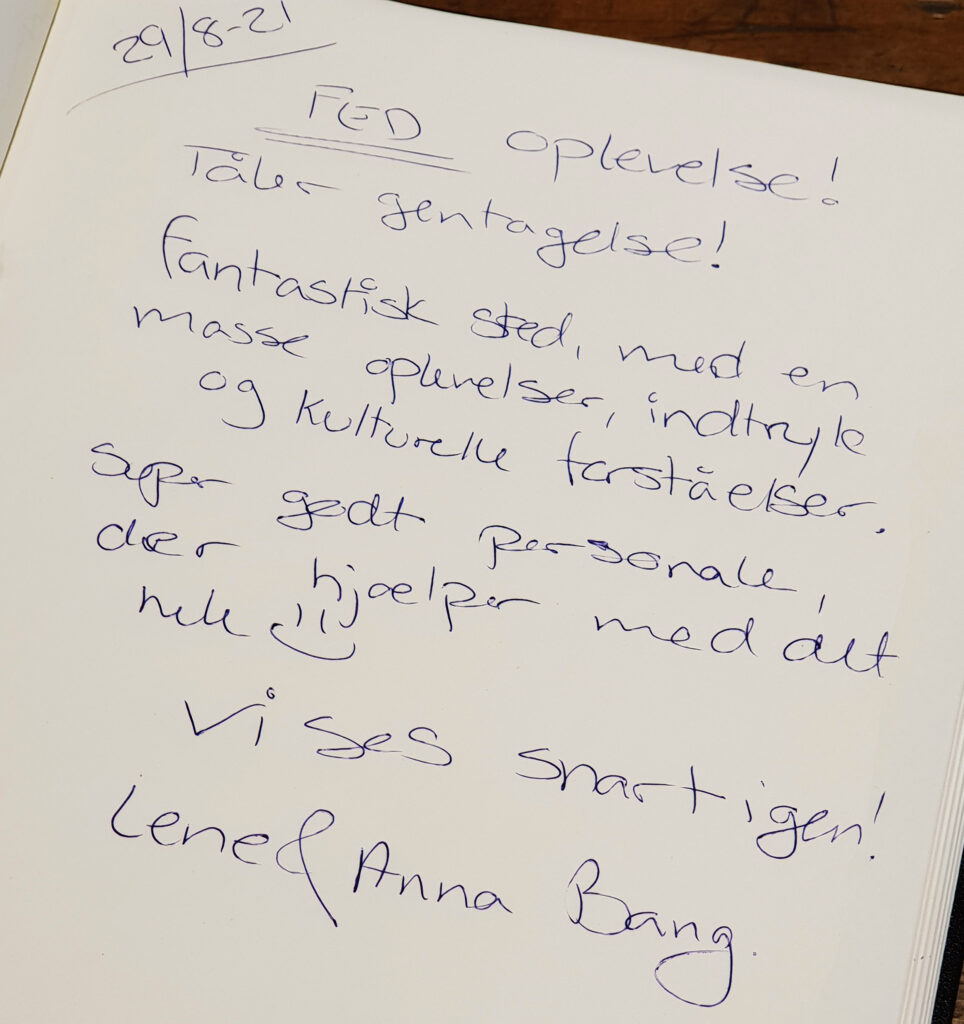 29/8-21
FED oplevelse!
Tåler gentagelse!
Fantastisk sted, med en
masse oplevelser, indtryk
og kulturelle forståelser.
Super godt personale,
der hjælper med det
hele
Vi ses snart igen!
Lene & Anna Bang.